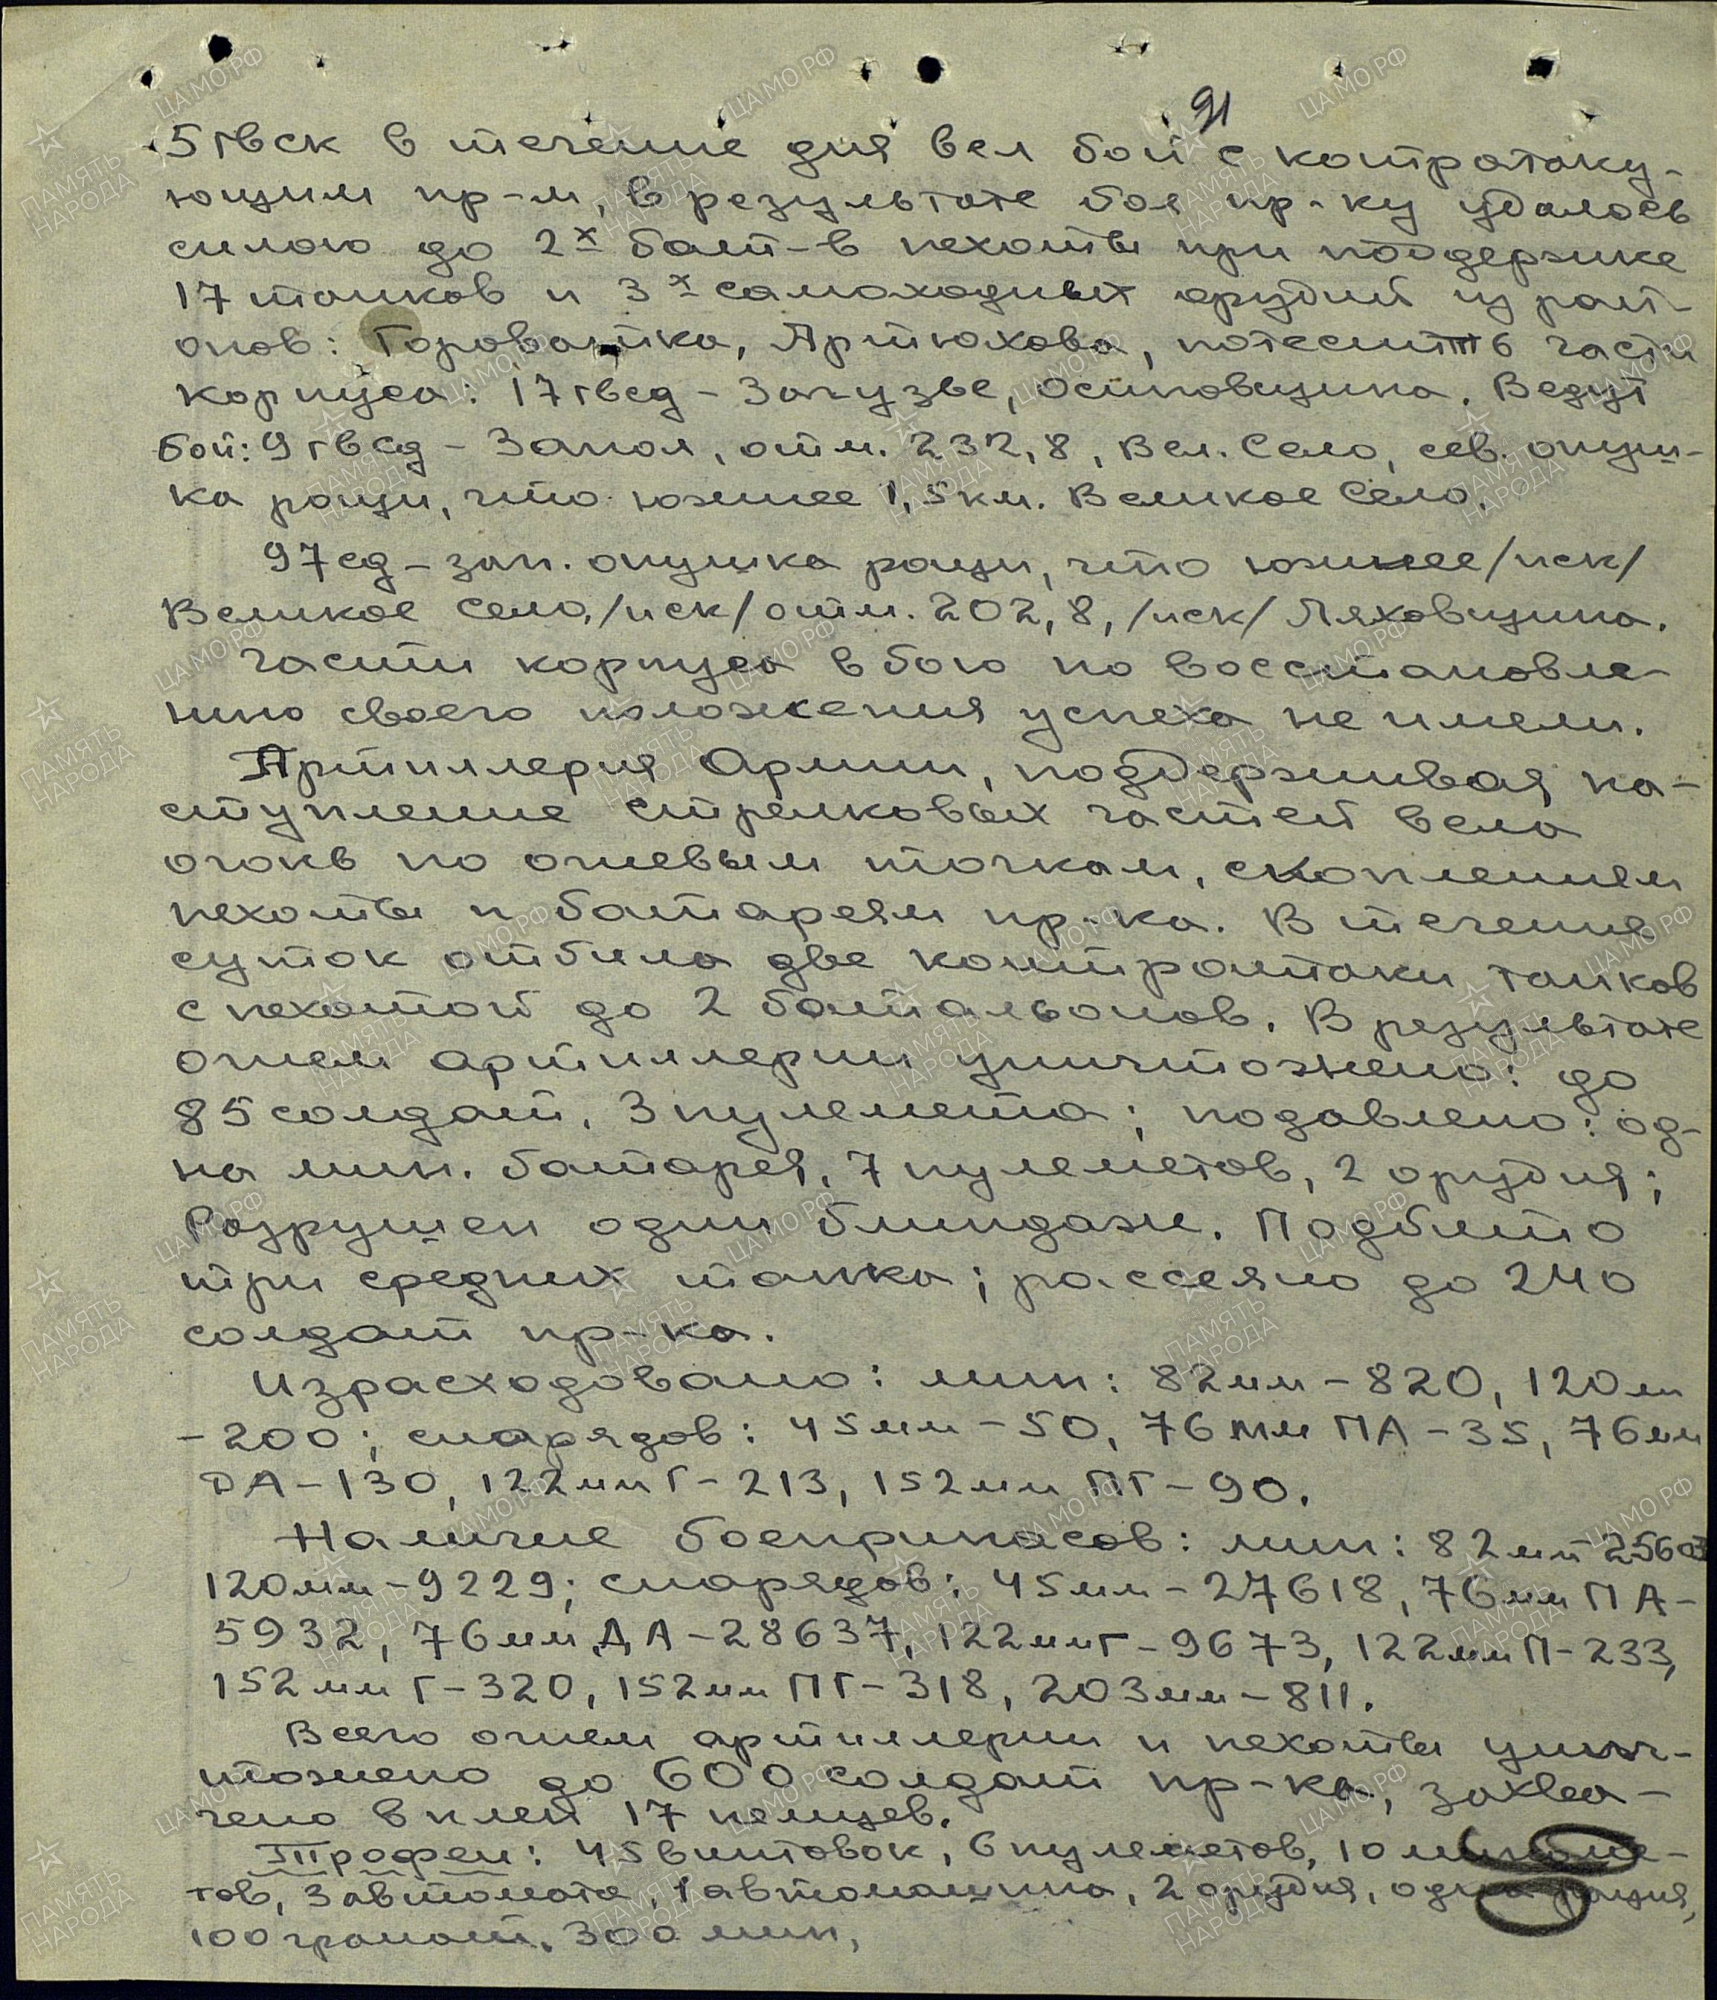 91
5 гвск в течение дня вел бой с контратаку-
ющим пр-м, в результате боя пр-ку удалось
силою до 2х бат-в пехоты при поддержке
17 танков и 3х самоходных орудий из рай-
онов: Гороватка, Артюхова, потеснить части
корпуса: 17 гвсд - Загузье, Осиповщина. Ведут
бой: 9 гвсд - Заполя, отм. 232,8, Вел. Село, сев. опуш-
ка рощи, что южнее 1,5 км. Великое Село,
97 сд - зап. опушка рощи, что южнее /иск/
Великое Село, /иск/ отм. 202,8, /иск/ Ляховщина.
Части корпуса в бою по восстановле-
нию своего положения успеха не имели.
Артиллерия Армии, поддерживая на-
ступление стрелковых частей вела
огонь по огневым точкам, скоплением
пехоты и батареям пр-ка. В течение
суток отбила две контратаки танков
с пехотой до 2 батальонов. В результате
огнем артиллерии уничтожено: до
85 солдат, 3 пулемета; подавлено: од-
на мин. батарея, 7 пулеметов, 2 орудия;
Разрушен один блиндаж. Подбито
три средних танка; рассеяно до 240
солдат пр-ка.
Израсходовано: мин: 82мм - 820, 120мм
- 200; снарядов: 45мм - 50, 76мм ПА - 35, 76мм
ДА - 130, 122мм Г - 213, 152мм ПГ - 90.
Наличие боеприпасов: мин: 82мм
120мм - 9229; снарядов: 45мм - 27618, 76мм ПА -
5932, 76мм ДА - 28637, 122мм Г - 9673, 122мм П - 233,
152мм Г - 320, 152мм ПГ - 318, 203мм - 811.
Всего огнем артиллерии и пехоты унич-
тожено до 600 солдат пр-ка, захва-
чено в плен 17 немцев.
Трофеи: 45 винтовок, 6 пулеметов, 10 миноме-
тов, 3 автомата, 1 автомашина, 2 орудия, одна рация,
100 гранат, 300 мин,
90